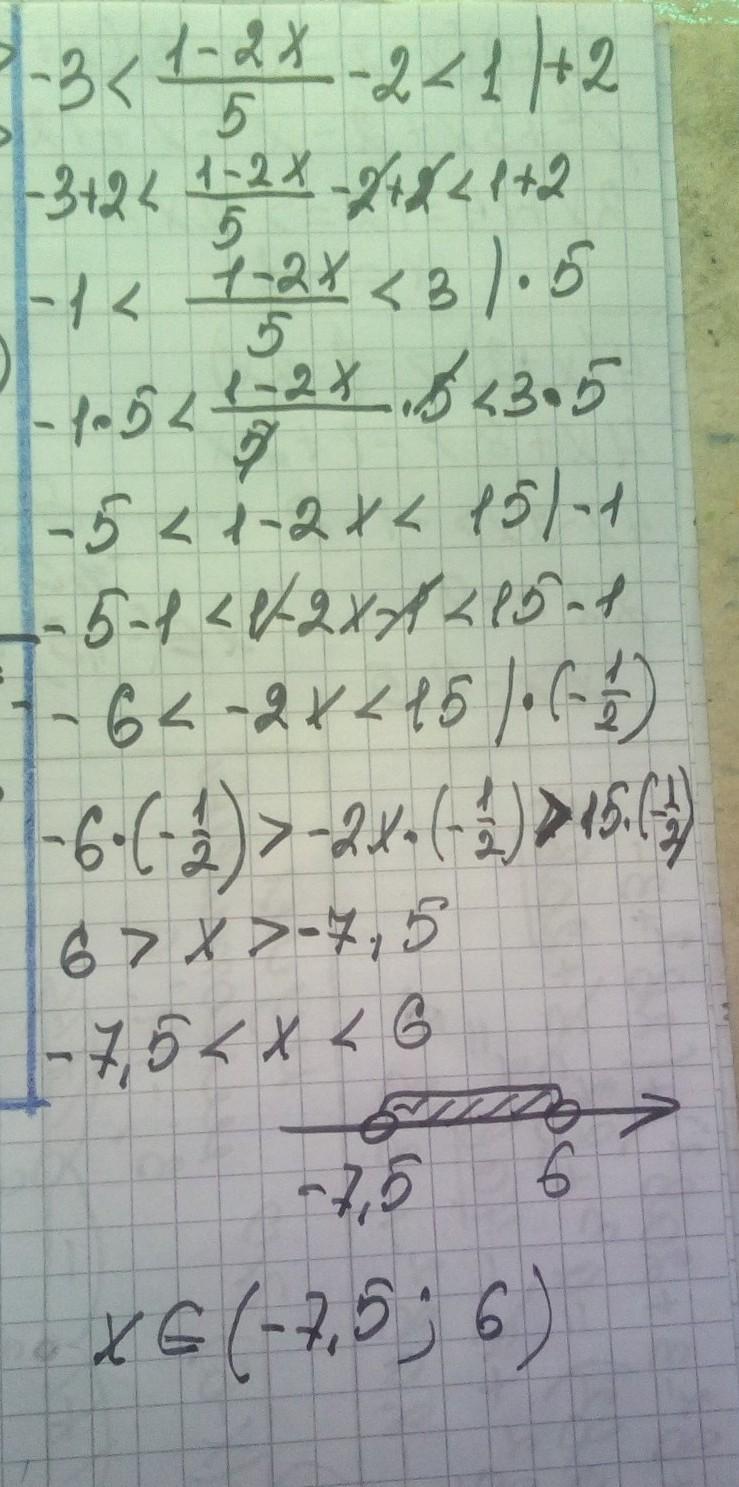 -3 < (1-2x)/5 -2 < 1 |+2
-3+2 < (1-2x)/5 -2+2 < 1+2
-1 < (1-2x)/5 < 3 |·5
-1·5 < (1-2x)/5 ·5 < 3·5
-5 < 1-2x < 15 |-1
-5-1 < 1-2x-1 < 15-1
-6 < -2x < 15 |·(-1/2)
-6·(-1/2) > -2x·(-1/2) > 15·(-1/2)
6 > x > -7,5
-7,5 < x < 6
-7,5 6
x ∈ (-7,5; 6)